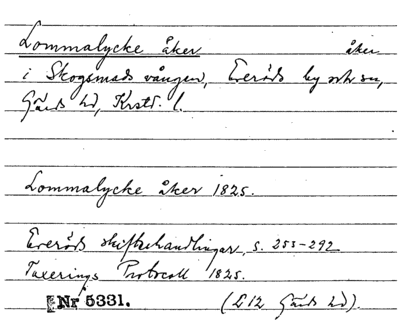 Lommalycke åker åker
i Skogsmads vången, Everöds by och sn,
Gärds hd, Krstd. l.
Lommalycke åker 1825.
Everöds skifteshandlingar, s. 253-292
Taxerings Protocoll 1825.
Nr 5331. (L12 Gärds hd).